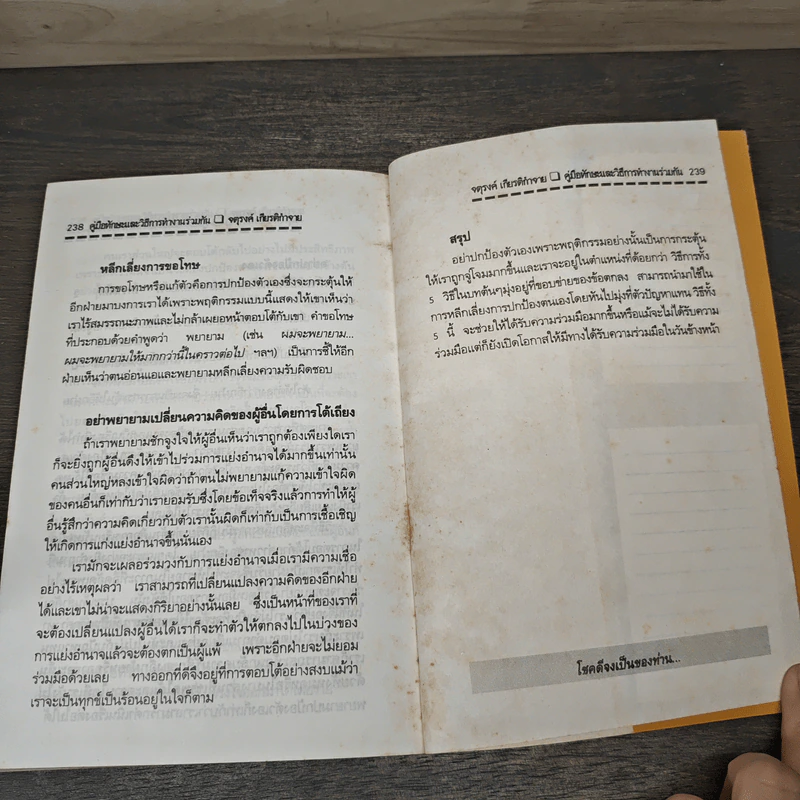 238 คู่มือทักษะและวิธีการทำงานร่วมกัน ❑ จตุรงค์ เกียรติกำจาย
หลีกเลี่ยงการขอโทษ
การขอโทษหรือแก้ตัวคือการปกป้องตัวเองซึ่งจะกระตุ้นให้
อีกฝ่ายมาบงการเราได้เพราะพฤติกรรมแบบนี้แสดงให้เขาเห็นว่า
เราไร้สมรรถนะภาพและไม่กล้าเผยอหน้าตอบโต้กับเขา คำขอโทษ
ที่ประกอบด้วยคำพูดว่า พยายาม (เช่น ผมจะพยายาม...
ผมจะพยายามให้มากกว่านี้ในคราวต่อไป ฯลฯ) เป็นการชี้ให้อีก
ฝ่ายเห็นว่าตนอ่อนแอและพยายามหลีกเลี่ยงความรับผิดชอบ
อย่าพยายามเปลี่ยนความคิดของผู้อื่นโดยการโต้เถียง
ถ้าเราพยายามชักจูงใจให้ผู้อื่นเห็นว่าเราถูกต้องเพียงใดเรา
ก็จะยิ่งถูกผู้อื่นดึงให้เข้าไปร่วมการแย่งอำนาจได้มากขึ้นเท่านั้น
คนส่วนใหญ่หลงเข้าใจผิดว่าถ้าตนไม่พยายามแก้ความเข้าใจผิด
ของคนอื่นก็เท่ากับว่าเรายอมรับซึ่งโดยข้อเท็จจริงแล้วการทำให้ผู้
อื่นรู้สึกว่าความคิดเกี่ยวกับตัวเรานั้นผิดก็เท่ากับเป็นการเชื้อเชิญ
ให้เกิดการแก่งแย่งอำนาจขึ้นนั่นเอง
เรามักจะเผลอร่วมวงกับการแย่งอำนาจเมื่อเรามีความเชื่อ
อย่างไร้เหตุผลว่า เราสามารถที่เปลี่ยนแปลงความคิดของอีกฝ่าย
ได้และเขาไม่น่าจะแสดงกิริยาอย่างนั้นเลย ซึ่งเป็นหน้าที่ของเราที่
จะต้องเปลี่ยนแปลงผู้อื่นได้เราก็จะทำตัวให้ตกลงไปในบ่วงของ
การแย่งอำนาจแล้วจะต้องตกเป็นผู้แพ้ เพราะอีกฝ่ายจะไม่ยอม
ร่วมมือด้วยเลย ทางออกที่ดีจึงอยู่ที่การตอบโต้อย่างสงบแม้ว่า
เราจะเป็นทุกข์เป็นร้อนอยู่ในใจก็ตาม
จตุรงค์ เกียรติกำจาย ❑ คู่มือทักษะและวิธีการทำงานร่วมกัน 239
สรุป
อย่าปกป้องตัวเองเพราะพฤติกรรมอย่างนั้นเป็นการกระตุ้น
ให้เราถูกจู่โจมมากขึ้นและเราจะอยู่ในตำแหน่งที่ด้อยกว่า วิธีการทั้ง
5 วิธีในบทต้นๆมุ่งอยู่ที่ขอบข่ายของข้อตกลง สามารถนำมาใช้ใน
การหลีกเลี่ยงการปกป้องตนเองโดยหันไปมุ่งที่ตัวปัญหาแทน วิธีทั้ง
5 นี้ จะช่วยให้ได้รับความร่วมมือมากขึ้นหรือแม้จะไม่ได้รับความ
ร่วมมือแต่ก็ยังเปิดโอกาสให้มีทางได้รับความร่วมมือในวันข้างหน้า
โชคดีจงเป็นของท่าน...